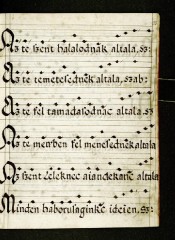 Az te ßent halalodnak altala, ßz:
Az te temetesednek altala, ßab:
Az te fel tamadasodnac altala, ßz
Az te menben fel menesednek altala
Az ßent Leleknec aiandekanac altala
Minden haborusaginkc ideien, ßz: